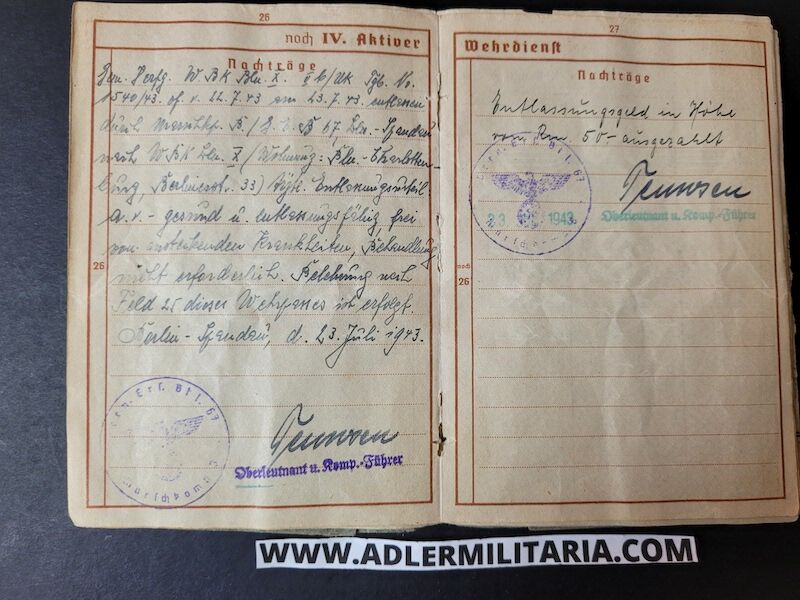 26
noch IV. Aktiver
Nachträge
Gem. Verfg. W B K Bln. X. II b/dk Tgb. No.
1540/43. v. 22.7.43 am 23.7.43 entlassen
durch Marschkp. B / E. B 67 Bln. - Spandau
nach W.B.K Bln. X / Wohnung: Bln. - Charlotten-
burg, 33) Entlassungsurteil
a. v. - gesund u. entlassungsfähig, frei
von ansteckenden Krankheiten, Behandlung
nicht erforderlich. Belehrung nach
Feld 25 dieses Wehrpasses ist erfolgt.
Berlin - Spandau, d. 23. Juli 1943.
26
Ers. Btl. 67
Marschkomp.
Oberleutnant u. Komp.-Führer
27
Wehrdienst
Nachträge
Entlassungsgeld in Höhe
von Rm. 50.- ausgezahlt
Ers. Btl. 67
23 1943
Marschkomp.
Oberleutnant u. Komp.-Führer
noch
26
WWW.ADLERMILITARIA.COM